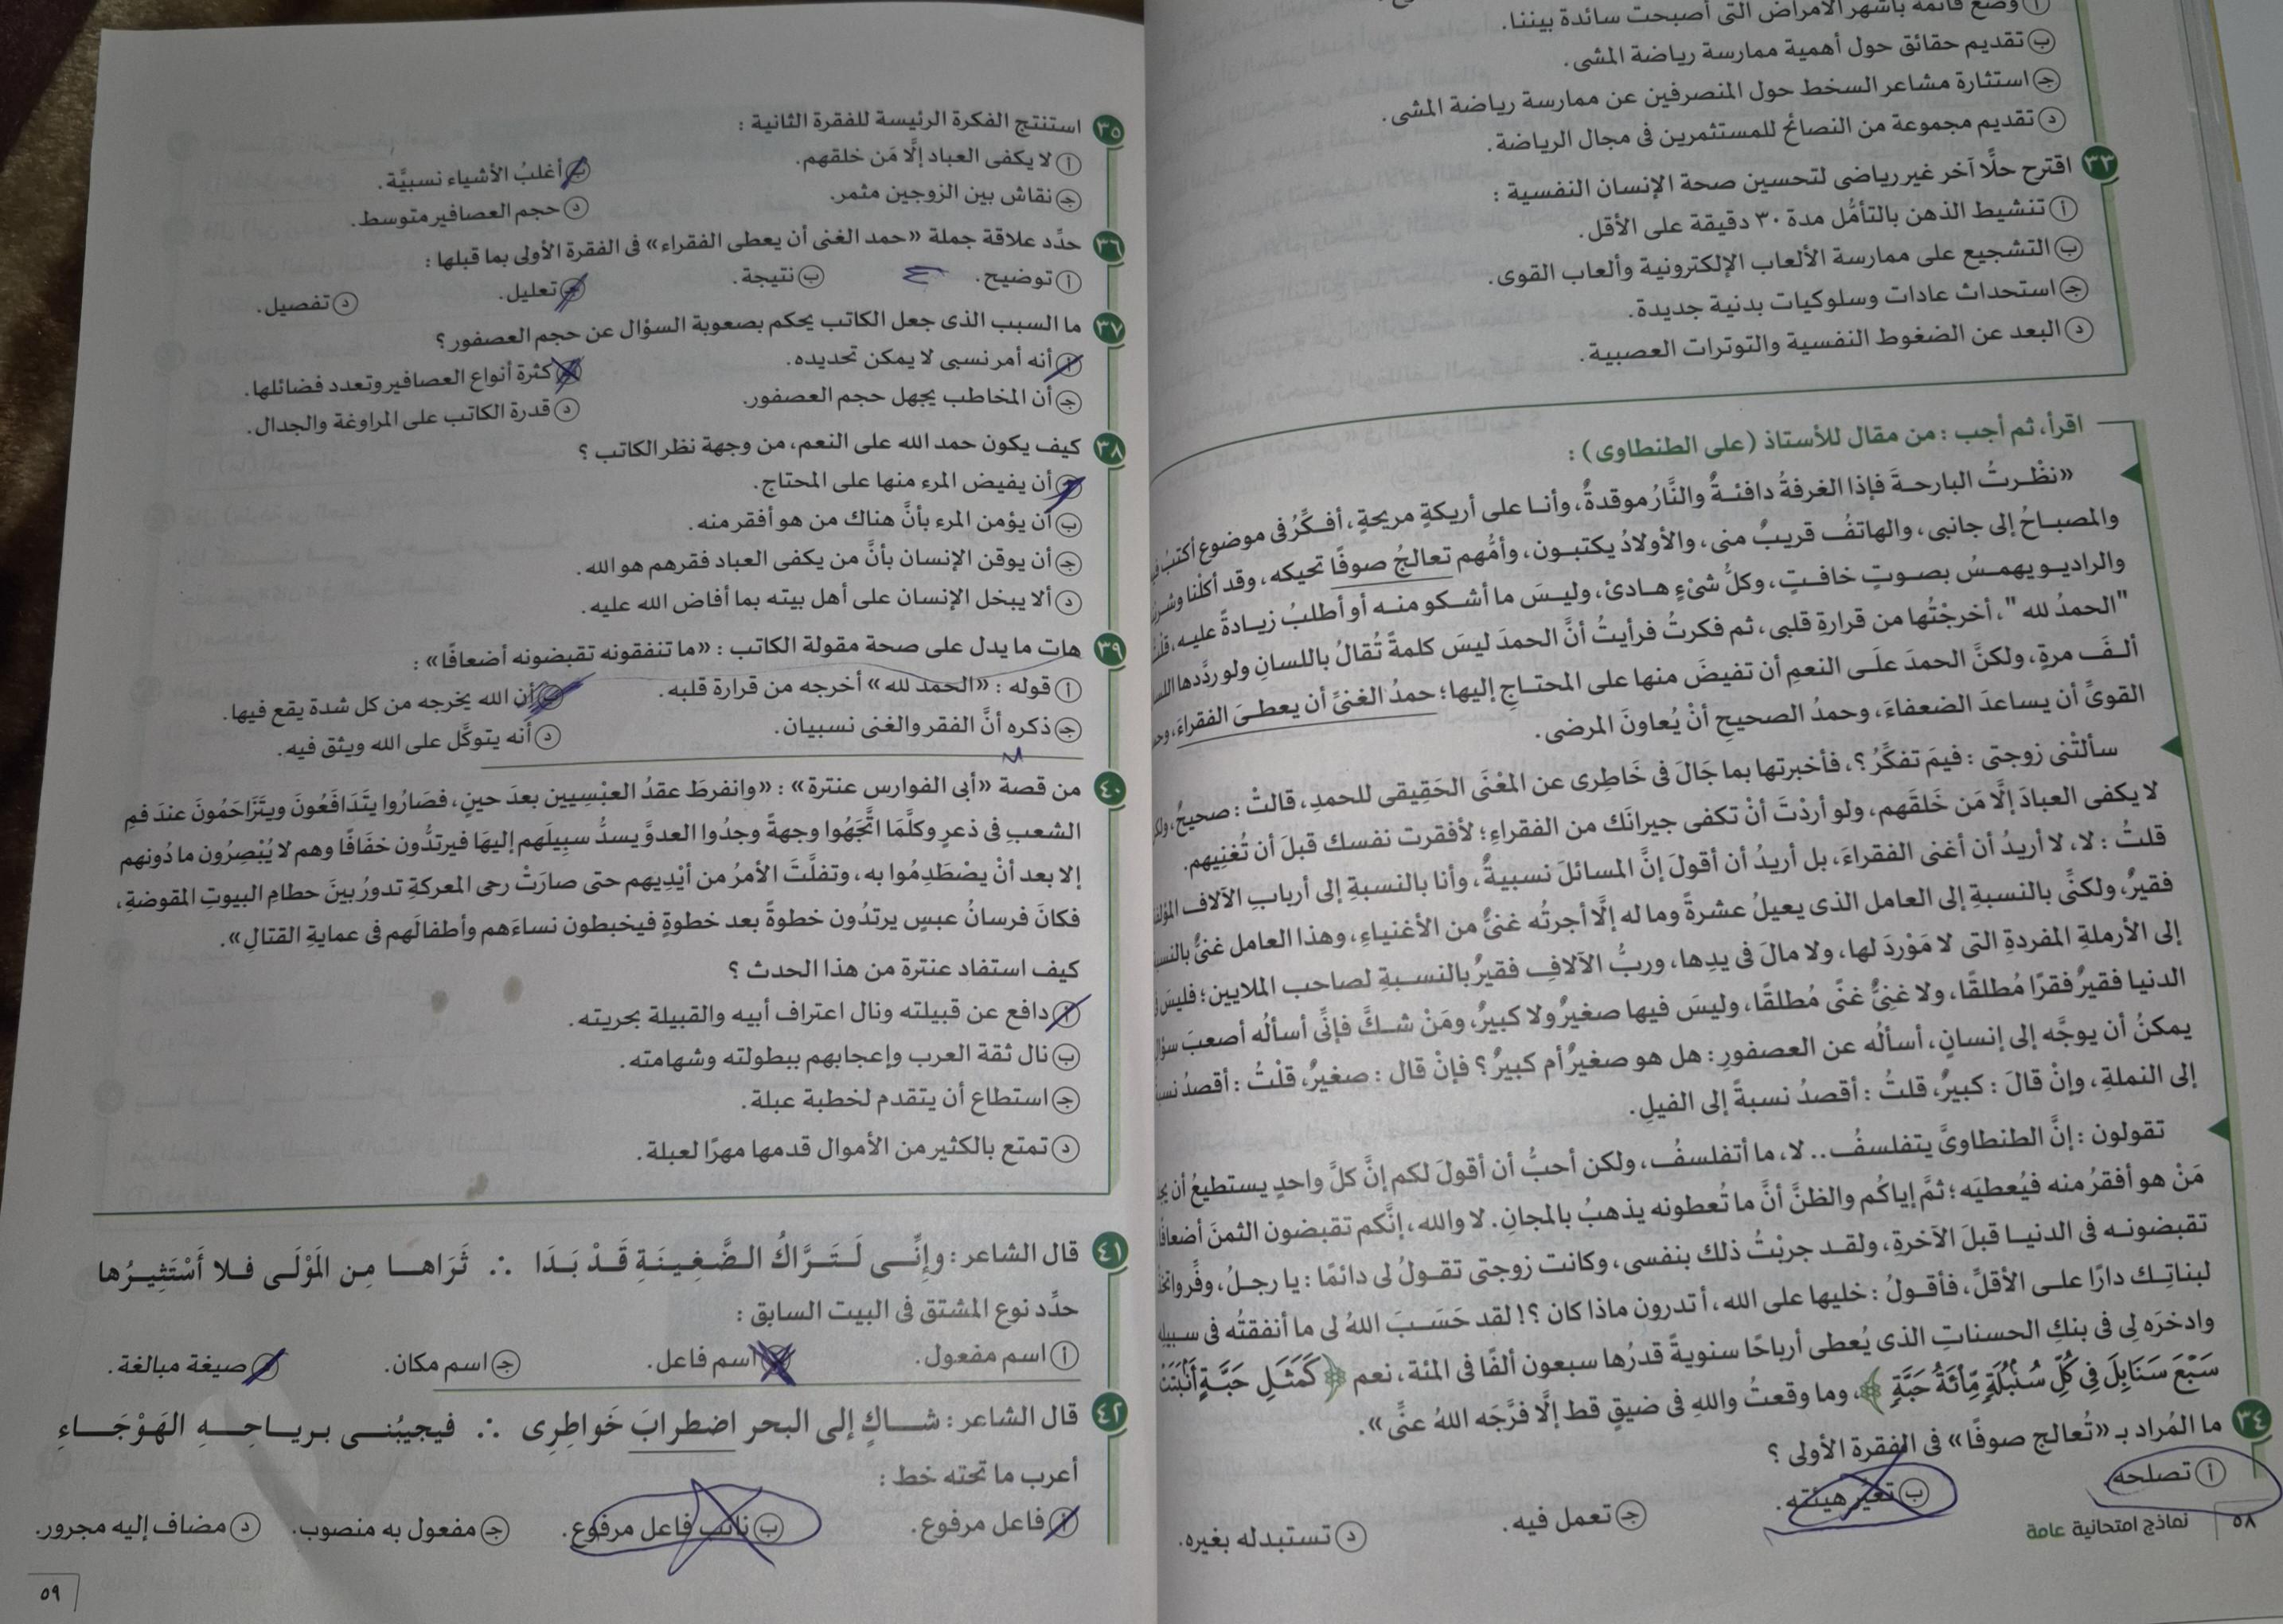 أ وضع قائمة بأشهر الأمراض التى أصبحت سائدة بيننا.
ب تقديم حقائق حول أهمية ممارسة رياضة المشى.
جـ استثارة مشاعر السخط حول المنصرفين عن ممارسة رياضة المشى.
د تقديم مجموعة من النصائح للمستثمرين فى مجال الرياضة.
٣٣ اقترح حلًّا آخر غير رياضى لتحسين صحة الإنسان النفسية :
أ تنشيط الذهن بالتأمُّل مدة ٣٠ دقيقة على الأقل.
ب التشجيع على ممارسة الألعاب الإلكترونية وألعاب القوى.
جـ استحداث عادات وسلوكيات بدنية جديدة.
د البعد عن الضغوط النفسية والتوترات العصبية.
اقرأ، ثم أجب : من مقال للأستاذ (على الطنطاوى) :
«نظْرتُ البارحةَ فإذا الغرفةُ دافئةٌ والنَّارُ موقدةٌ، وأنا على أريكةٍ مريحةٍ، أفكِّرُ فى موضوع أكتبُ
والمصباحُ إلى جانبى، والهاتفُ قريبٌ منى، والأولادُ يكتبون، وأمُّهم تعالجُ صوفًا تحيكه، وقد أكلْنا
والراديو يهمسُ بصوتٍ خافتٍ، وكلُّ شىْءٍ هادئ، وليسَ ما أشكو منه أو أطلبُ زيادةً عليه،
"الحمدُ لله"، أخرجْتُها من قرارةِ قلبى، ثم فكرتُ فرأيتُ أنَّ الحمدَ ليسَ كلمةً تُقالُ باللسانِ ولو ردَّدها
ألفَ مرةٍ، ولكنَّ الحمدَ علَى النعمِ أن تفيضَ منها على المحتاجِ إليها؛ حمدُ الغنىِّ أن يعطىَ الفقراءَ،
القوىِّ أن يساعدَ الضعفاءَ، وحمدُ الصحيحِ أنْ يُعاونَ المرضى.
سألتْنى زوجتى : فيمَ تفكِّرُ؟، فأخبرتها بما جَالَ فى خَاطِرى عن المعْنَى الحَقِيقى للحمدِ، قالتْ : صحيحٌ،
لا يكفى العبادَ إلَّا مَن خَلقَهم، ولو أردْتَ أنْ تكفى جيرانَك من الفقراءِ؛ لأفقرت نفسك قبلَ أن تُغنِيهم.
قلتُ : لا، لا أريدُ أن أغنى الفقراءَ، بل أريدُ أن أقولَ إنَّ المسائلَ نسبيةٌ، وأنا بالنسبةِ إلى أربابِ الآلاف
فقيرٌ، ولكنِّى بالنسبةِ إلى العامل الذى يعيلُ عشرةً وما له إلَّا أجرتُه غنىٌّ من الأغنياءِ، وهذا العامل غنىٌّ
إلى الأرملةِ المفردةِ التى لا مَوْردَ لها، ولا مالَ فى يدِها، وربُّ الآلافِ فقيرٌ بالنسبةِ لصاحب الملايين؛
الدنيا فقيرٌ فقرًا مُطلقًا، ولا غنىٌّ غنًى مُطلقًا، وليسَ فيها صغيرٌ ولا كبيرٌ، ومَنْ شكَّ فإنِّى أسألُه أصعبَ
يمكنُ أن يوجَّه إلى إنسانٍ، أسألُه عن العصفورِ : هل هو صغيرٌ أم كبيرٌ؟ فإنْ قال : صغيرٌ، قلْتُ : أقصدُ
إلى النملةِ، وإنْ قالَ : كبيرٌ، قلتُ : أقصدُ نسبةً إلى الفيلِ.
تقولون : إنَّ الطنطاوىَّ يتفلسفُ.. لا، ما أتفلسفُ، ولكن أحبُّ أن أقولَ لكم إنَّ كلَّ واحدٍ يستطيعُ أن
مَنْ هو أفقرُ منه فيُعطيَه؛ ثمَّ إياكُم والظنَّ أنَّ ما تُعطونه يذهبُ بالمجانِ. لا والله، إنَّكم تقبضون الثمنَ أضعافًا
تقبضونه فى الدنيا قبلَ الآخرةِ، ولقد جربْتُ ذلك بنفسى، وكانت زوجتى تقولُ لى دائمًا : يا رجلُ،
لبناتِك دارًا على الأقلِّ، فأقولُ : خليها على الله، أتدرون ماذا كان؟! لقد حَسَبَ اللهُ لى ما أنفقتُه فى سبيله
وادخرَه لِى فى بنكِ الحسناتِ الذى يُعطى أرباحًا سنويةً قدرُها سبعون ألفًا فى المئة، نعم ﴿ كَمَثَلِ حَبَّةٍ أَنۢبَتَتۡ
سَبۡعَ سَنَابِلَ فِى كُلِّ سُنۢبُلَةٖ مِّاْئَةُ حَبَّةٖ ﴾، وما وقعتُ واللهِ فى ضيقٍ قط إلَّا فرَّجَه اللهُ عنِّى».
٣٤ ما المُراد بـ «تُعالج صوفًا» فى الفقرة الأولى ؟
أ تصلحه.
ب تغيِّر هيئته.
جـ تعمل فيه.
د تستبدله بغيره.
٥٨ نماذج امتحانية عامة
٣٥ استنتج الفكرة الرئيسة للفقرة الثانية :
أ لا يكفى العباد إلَّا مَن خلقهم.
ب أغلبُ الأشياء نسبيَّة.
جـ نقاش بين الزوجين مثمر.
د حجم العصافير متوسط.
٣٦ حدِّد علاقة جملة «حمد الغنى أن يعطى الفقراء» فى الفقرة الأولى بما قبلها :
أ توضيح.
ب نتيجة.
جـ تعليل.
د تفصيل.
٣٧ ما السبب الذى جعل الكاتب يحكم بصعوبة السؤال عن حجم العصفور؟
أ أنه أمر نسبى لا يمكن تحديده.
ب كثرة أنواع العصافير وتعدد فضائلها.
جـ أن المخاطب يجهل حجم العصفور.
د قدرة الكاتب على المراوغة والجدال.
٣٨ كيف يكون حمد الله على النعم، من وجهة نظر الكاتب ؟
أ أن يفيض المرء منها على المحتاج.
ب أن يؤمن المرء بأنَّ هناك من هو أفقر منه.
جـ أن يوقن الإنسان بأنَّ من يكفى العباد فقرهم هو الله.
د ألا يبخل الإنسان على أهل بيته بما أفاض الله عليه.
٣٩ هات ما يدل على صحة مقولة الكاتب : «ما تنفقونه تقبضونه أضعافًا» :
أ قوله : «الحمد لله» أخرجه من قرارة قلبه.
ب أن الله يخرجه من كل شدة يقع فيها.
جـ ذكره أنَّ الفقر والغنى نسبيان.
د أنه يتوكَّل على الله ويثق فيه.
٤٠ من قصة «أبى الفوارس عنترة» : «وانفرطَ عقدُ العبْسِيين بعدَ حينٍ، فصَارُوا يتَدَافَعُونَ ويتَزَاحَمُونَ عندَ فمِ
الشعبِ فى ذعرٍ وكلَّمَا اتَّجَهُوا وجهةً وجدُوا العدوَّ يسدُّ سبِيلَهم إليهَا فيرتدُّون خفَافًا وهم لا يُبْصِرُون ما دُونهم
إلا بعد أنْ يصْطَدِمُوا به، وتفلَّتَ الأمرُ من أيْدِيهم حتى صارَتْ رحى المعركةِ تدورُ بينَ حطامِ البيوتِ المقوضةِ،
فكانَ فرسانُ عبسٍ يرتدُّون خطوةً بعد خطوةٍ فيخبطون نساءَهم وأطفالَهم فى عمايةِ القتالِ».
كيف استفاد عنترة من هذا الحدث ؟
أ دافع عن قبيلته ونال اعتراف أبيه والقبيلة بحريته.
ب نال ثقة العرب وإعجابهم ببطولته وشهامته.
جـ استطاع أن يتقدم لخطبة عبلة.
د تمتع بالكثير من الأموال قدمها مهرًا لعبلة.
٤١ قال الشاعر : وإِنِّى لَتَرَّاكُ الضَّغِينَةِ قَدْ بَدَا ∴ ثَرَاها مِن المَوْلَى فلا أَسْتَثِيرُها
حدِّد نوع المشتق فى البيت السابق :
أ اسم مفعول.
ب اسم فاعل.
جـ اسم مكان.
د صيغة مبالغة.
٤٢ قال الشاعر : شاكٍ إلى البحر اضطرابَ خَواطِرِى ∴ فيجيبُنى برياحِهِ الهَوْجَاءِ
أعرب ما تحته خط :
أ فاعل مرفوع.
ب نائب فاعل مرفوع.
جـ مفعول به منصوب.
د مضاف إليه مجرور.
٥٩